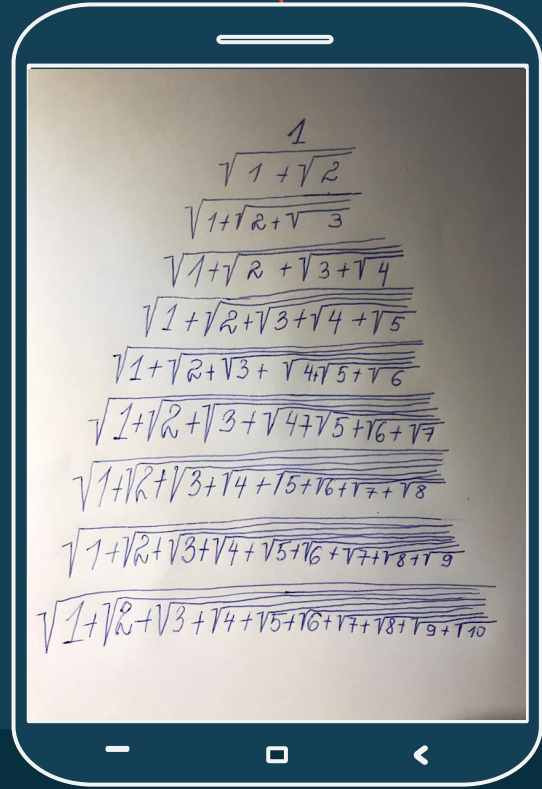 1
√1+√2
√1+√2+√3
√1+√2+√3+√4
√1+√2+√3+√4+√5
√1+√2+√3+√4+√5+√6
√1+√2+√3+√4+√5+√6+√7
√1+√2+√3+√4+√5+√6+√7+√8
√1+√2+√3+√4+√5+√6+√7+√8+√9
√1+√2+√3+√4+√5+√6+√7+√8+√9+√10